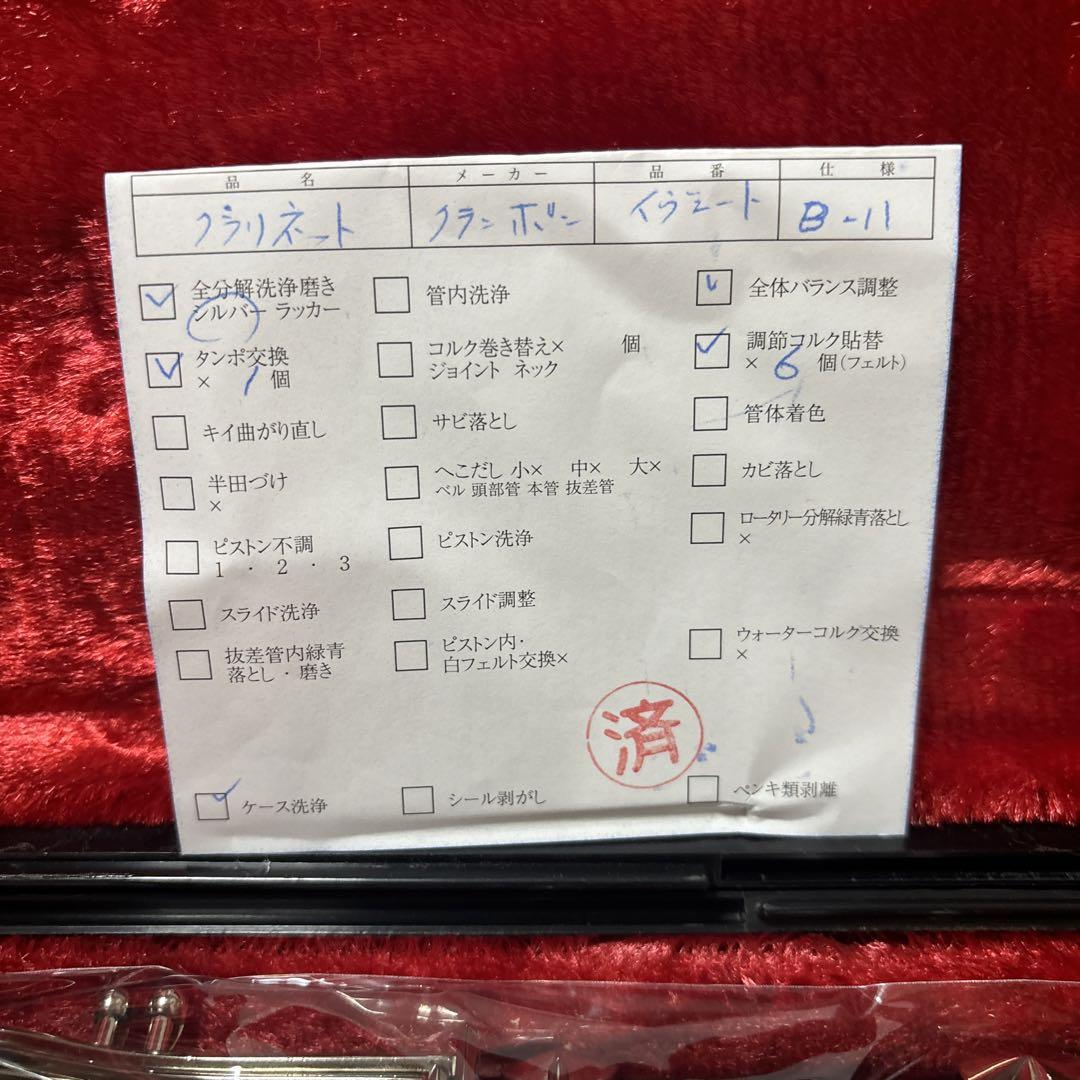 品名 メーカー 品番 仕様
クラリネット クランポン イヴェート B-11
全分解洗浄磨き 管内洗浄 全体バランス調整
シルバー ラッカー
タンポ交換 コルク巻き替え× 個 調節コルク貼替
× 1 個 ジョイント ネック × 6 個(フェルト)
キイ曲がり直し サビ落とし 管体着色
半田づけ へこだし 小× 中× 大× カビ落とし
× ベル 頭部管 本管 抜差管
ピストン不調 ピストン洗浄 ロータリー分解緑青落とし
1・2・3 ×
スライド洗浄 スライド調整
抜差管内緑青 ピストン内・ ウォーターコルク交換
落とし・磨き 白フェルト交換× ×
済
ケース洗浄 シール剥がし ペンキ類剥離